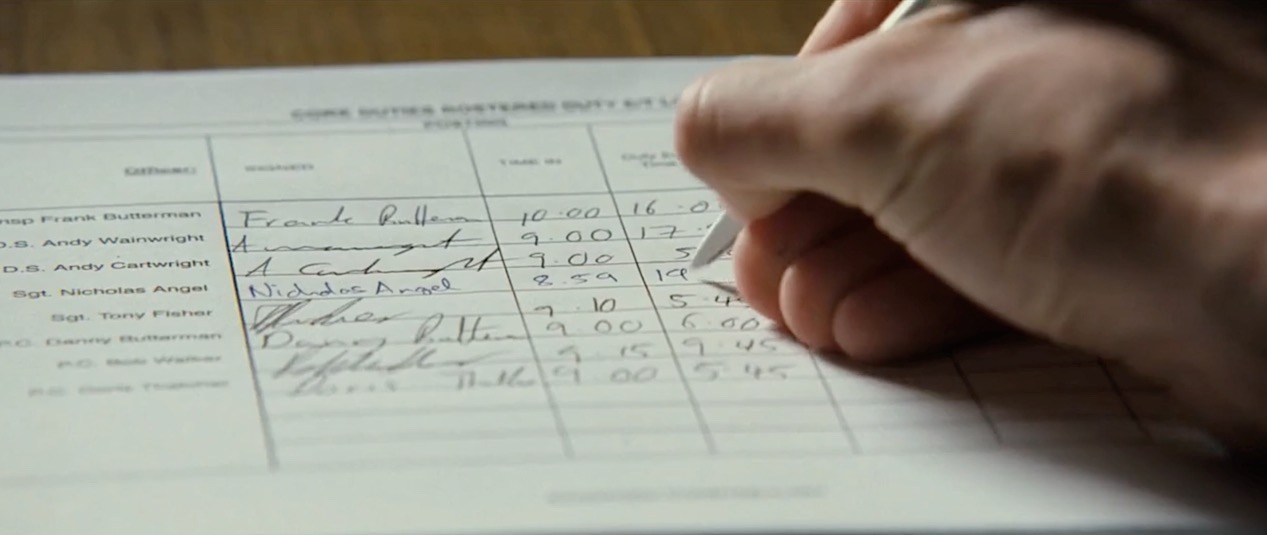 CORE DUTIES ROSTERED DUTY
POSTING
Officer: SIGNED TIME IN Duty
Insp Frank Butterman Frank Butterm 10.00 16.0
D.S. Andy Wainwright 9.00 17.
D.S. Andy Cartwright A Cartwright 9.00 5
Sgt. Nicholas Angel Nicholas Angel 8.59 19
Sgt. Tony Fisher 9.10 5.4
P.C. Danny Butterman Danny Butterm 9.00 6.00
P.C. Bob Walker 9.15 9.45
P.C. Doris Thatcher Doris 9.00 5.45